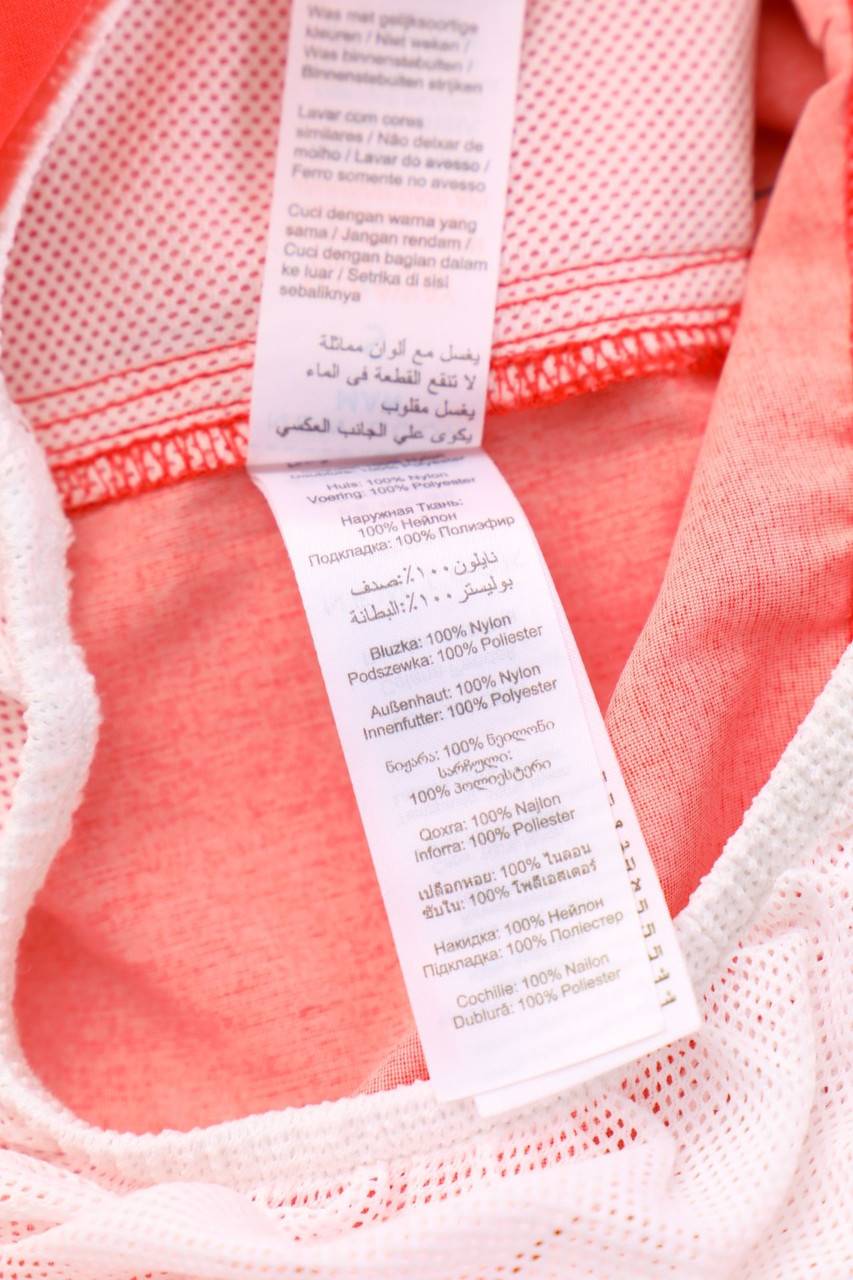 Was met gelijksoortige
kleuren / Niet weken /
Was binnenstebuiten /
Binnenstebuiten strijken
Lavar com cores
similares / Não deixar de
molho / Lavar do avesso /
Ferro somente no avesso
Cuci dengan warna yang
sama / Jangan rendam /
Cuci dengan bagian dalam
ke luar / Setrika di sisi
sebaliknya
يغسل مع ألوان مماثلة
لا تنقع القطعة فى الماء
يغسل مقلوب
يكوى علي الجانب العكسي
Huls: 100% Nylon
Voering: 100% Polyester
Наружная Ткань:
100% Нейлон
Подкладка: 100% Полиэфир
نايلون ١٠٠٪:صدف
بوليستر ١٠٠٪:البطانة
Bluzka: 100% Nylon
Podszewka: 100% Poliester
Außenhaut: 100% Nylon
Innenfutter: 100% Polyester
ნიჟარა: 100% ნეილონი
სარჩული:
100% პოლიესტერი
Qoxra: 100% Najlon
Inforra: 100% Poliester
เปลือกหอย: 100% ไนลอน
ซับใน: 100% โพลีเอสเตอร์
Накидка: 100% Нейлон
Підкладка: 100% Поліестер
Cochilie: 100% Nailon
Dublură: 100% Poliester